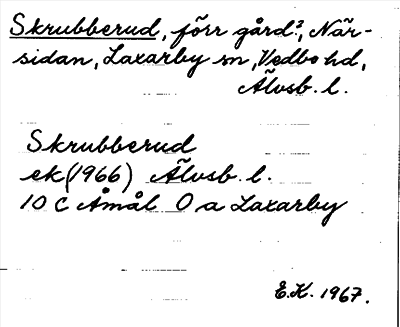 Skrubberud, förr gård², När-
sidan, Laxarby sn, Vedbo hd,
Älvsb. l.
Skrubberud
ek (1966) Älvsb. l.
10 C Åmål O a Laxarby
E.K. 1967.